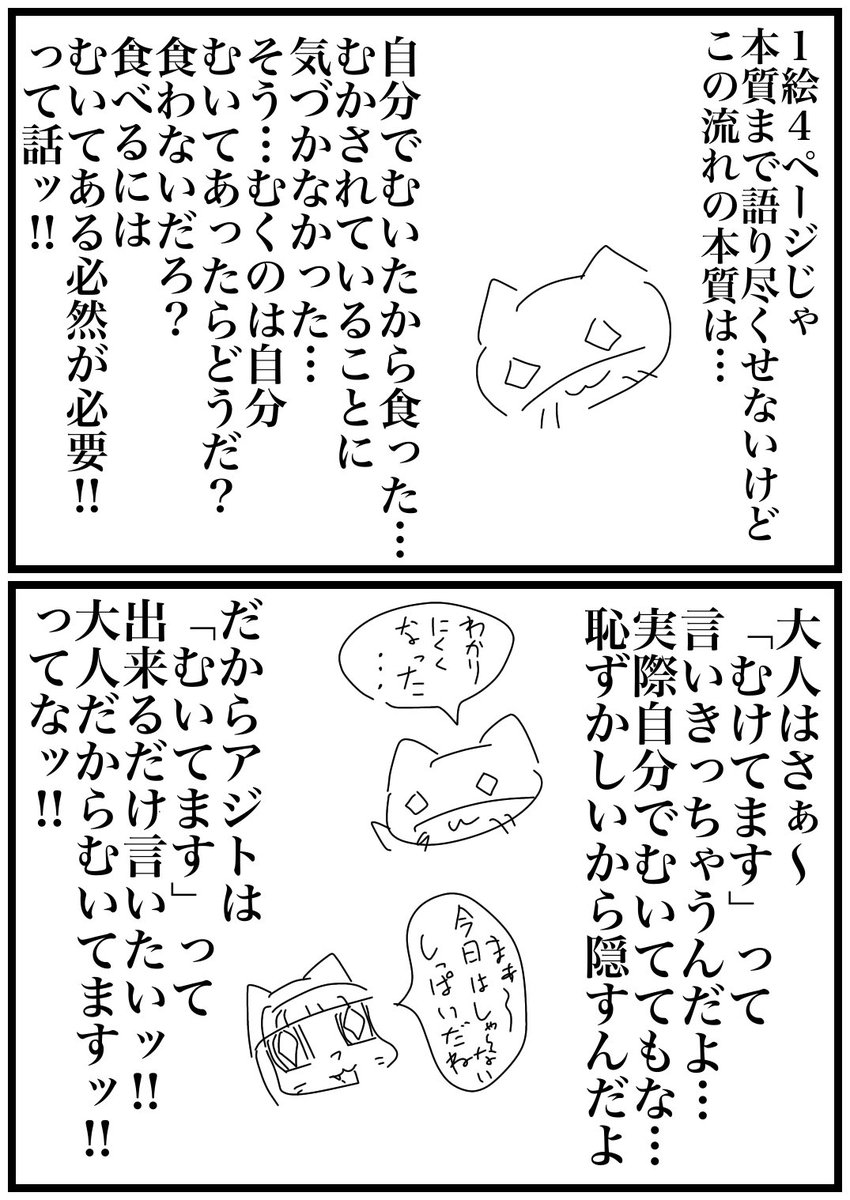 1絵4ページじゃ
本質まで語り尽くせないけど
この流れの本質は…
自分でむいたから食った…
むかされていることに
気づかなかった…
そう…むくのは自分
むいてあったらどうだ？
食わないだろ？
食べるには
むいてある必然が必要!!
って話ッ!!
大人はさぁ～
「むけてます」って
言いきっちゃうんだよ…
実際自分でむいててもな…
恥ずかしいから隠すんだよ
わかり
にくく
なった
…
だからアジトは
「むいてます」って
出来るだけ言いたいッ!!
大人だからむいてますッ!!
ってなッ!!
まぁ～
今日はしゃーない
しっぱいだね